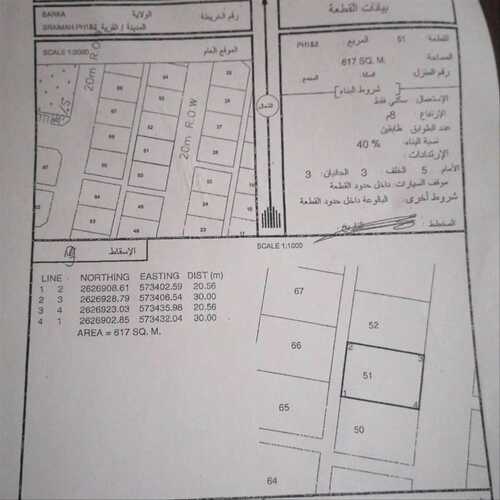 بيانات القطعة
رقم الخريطة
الولاية
BARKA
المدينة / القرية
SRAIMAH PH1&2
القطعة 51 المربع PH1&2
المساحة 617 SQ. M.
رقم المنزل السكة المجمع
شروط البناء
الإستعمال: سكني فقط
الإرتفاع 8م
عدد الطوابق طابقين
نسبة البناء: 40 %
الإرتدادات:
الأمام 5 الخلف 3 الجانبان 3
موقف السيارات: داخل حدود القطعة
شروط أخرى: البالوعة داخل حدود القطعة
المخطط: التاريخ:
الموقع العام
SCALE 1:3000
20m R.O.W
20m R.O.W
الشمال
الإسقاط
SCALE 1:1000
LINE NORTHING EASTING DIST (m)
1 2 2626908.61 573402.59 20.56
2 3 2626928.79 573406.54 30.00
3 4 2626923.03 573435.98 20.56
4 1 2626902.85 573432.04 30.00
AREA = 617 SQ. M.
67
52
66
2 3
51
1 4
65
50
64